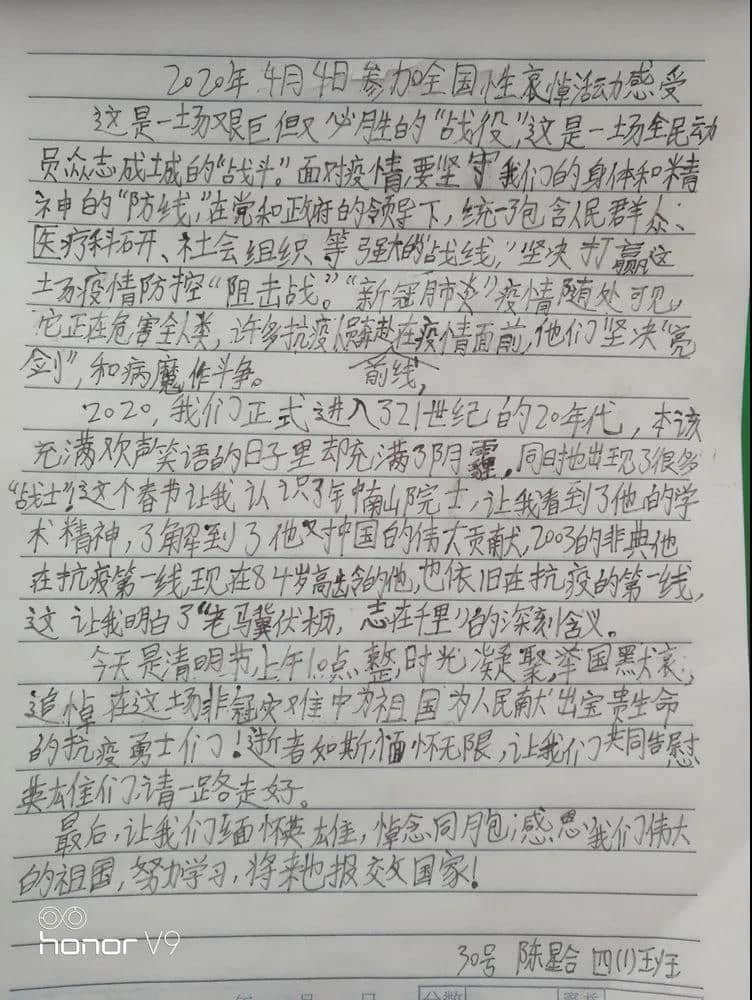 2020年4月4日参加全国性哀悼活动感受
这是一场艰巨但又必胜的“战役”,这是一场全民动
员众志成城的“战斗”。面对疫情,要坚守我们的身体和精
神的“防线”,在党和政府的领导下,统一了包含人民群众、
医疗科研、社会组织等强大的“战线”,坚决打赢这
场疫情防控“阻击战”。“新冠肺炎”疫情随处可见,
它正在危害全人类,许多抗疫人员奔赴在疫情面前,他们坚决“亮
剑”,和病魔作斗争。 前线,
2020,我们正式进入321世纪的20年代,本该
充满欢声笑语的日子里却充满了阴霾,同时也出现了很多
“战士”!这个春节让我认识了钟南山院士,让我看到了他的学
术精神,了解到了他对中国的伟大贡献,2003的非典他
在抗疫第一线,现在84岁高龄的他,也依旧在抗疫的第一线,
这让我明白了“老马冀伏枥,志在千里”的深刻含义。
今天是清明节,上午10点整,时光凝聚,举国默哀,
追悼在这场非冠灾难中为祖国为人民献出宝贵生命
的抗疫勇士们!逝者如斯,缅怀无限,让我们共同告慰
英雄们,请一路走好。
最后,让我们缅怀英雄,悼念同胞,感恩我们伟大
的祖国,努力学习,将来也报效国家!
30号 陈星合 四(1)班
honor V9
分数